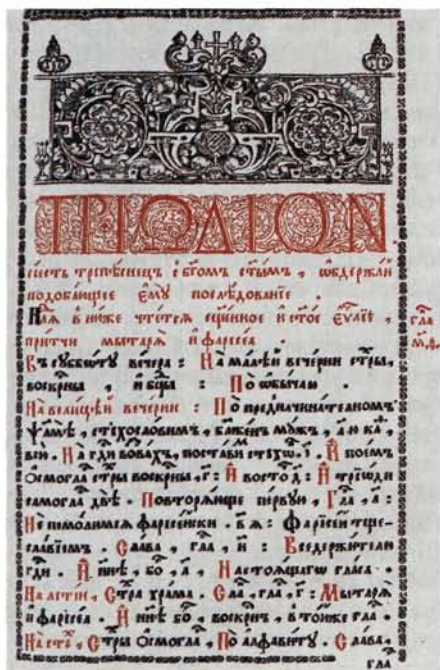 ТРІѠДІОН
сиесть трипѣснецъ с бг҃омъ ст҃ымъ , ѡбдержаи
подобающее є҆му̀ послѣдованїе .
в ню́же чте́тсѧ сщ҃енное и ст҃о́е єѵⷢ҇лїе ,
при́тчи мытарѧ̀ и фарїсе́а .
Въ сꙋббѡ́тꙋ ве́чера : На ма́лѣй вече́рни ст҃ры ,
воскрⷭ҇ны , и бц҃ы : По ѡбы́чаю .
На вели́цѣй вече́рни : По предначина́телномъ
ѱалмѣ̀ , стїхосло́вимъ , блаже́нъ мꙋ́жъ , а҃ ю каѳ ,
всю . На гдⷭ҇и воззва́хъ , поста́ви стїхѡ́ . і҃ . И пое́мъ
Ѻсмогла́ ст҃ры воскрⷭ҇ны , г҃ : И восто́ д҃ : И трїѡ́ди
самогла́ двѣ̀ . Повторѧ́юще пе́рвꙋю , Гла , а҃ :
Не помо́лимсѧ фарїсе́йски . в҃ ѧ : Фарїсе́й тще-
сла́вїемъ . Сла́ва , гла , и҃ : Вседержи́телю
гдⷭ҇и . И нн҃ѣ , бо , а҃ , Настоѧ́щагѡ гла́са .
На лїтїи , Ст҃ра хра́ма . Сла , гла , г҃ : Мытарѧ̀
и фарїсе́а . И нн҃ѣ бо , воскрⷭ҇нъ , в то́йже гла .
На сти , Ст҃ры Ѻсмогла , По алфави́тꙋ . Сла́ва ,
гла